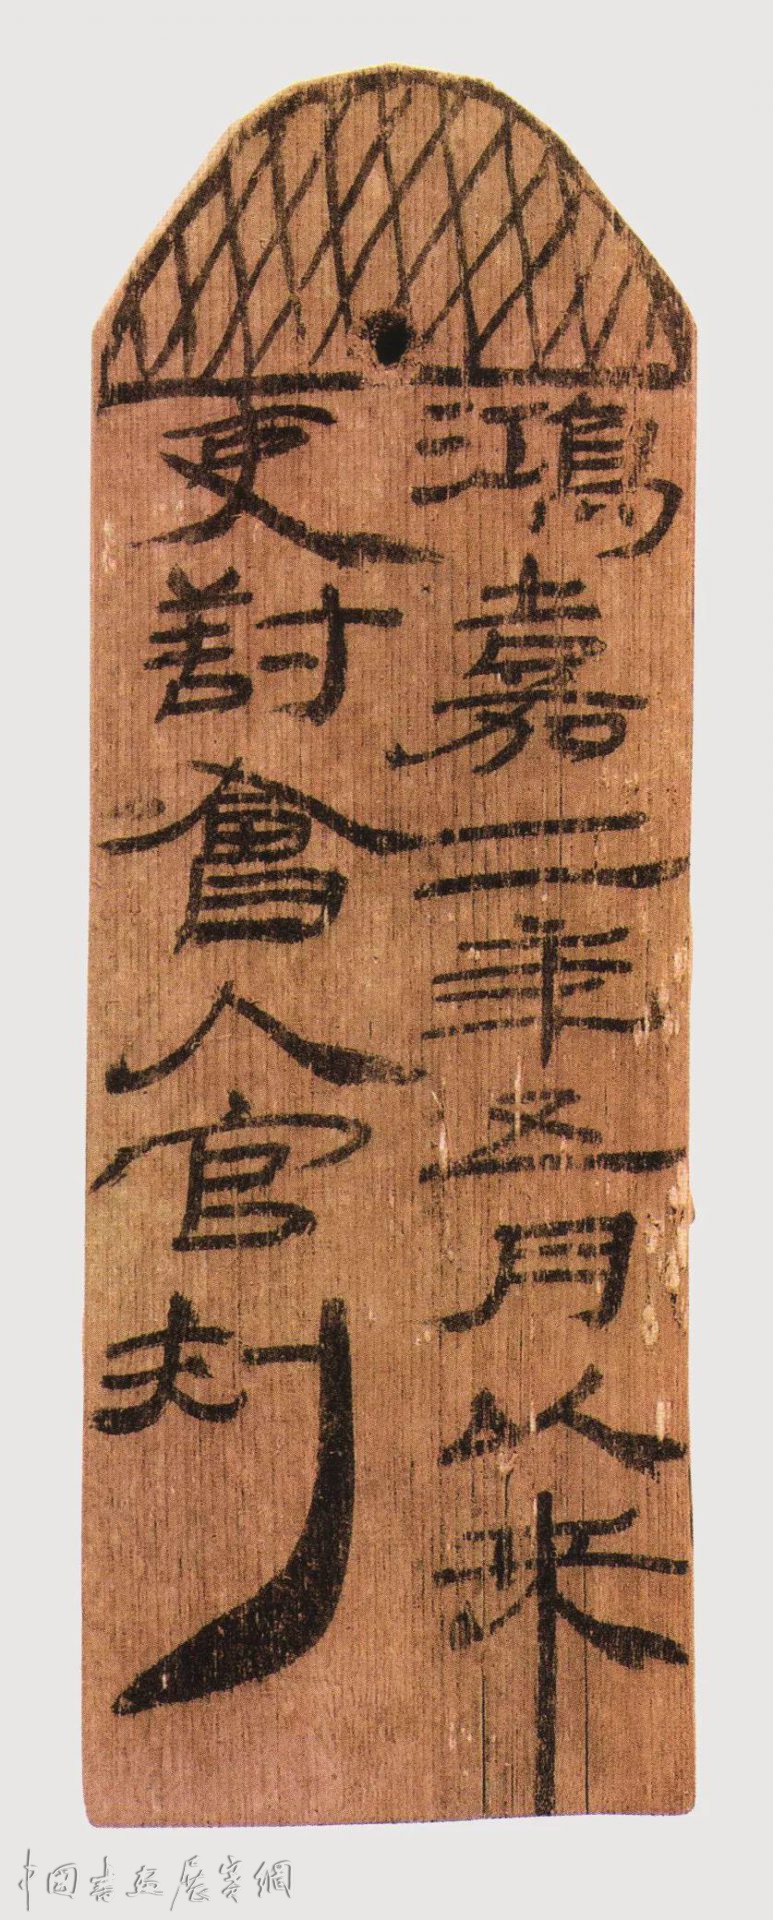 鴻嘉二年五月以來
吏對會入官刺
中国書画展賽網